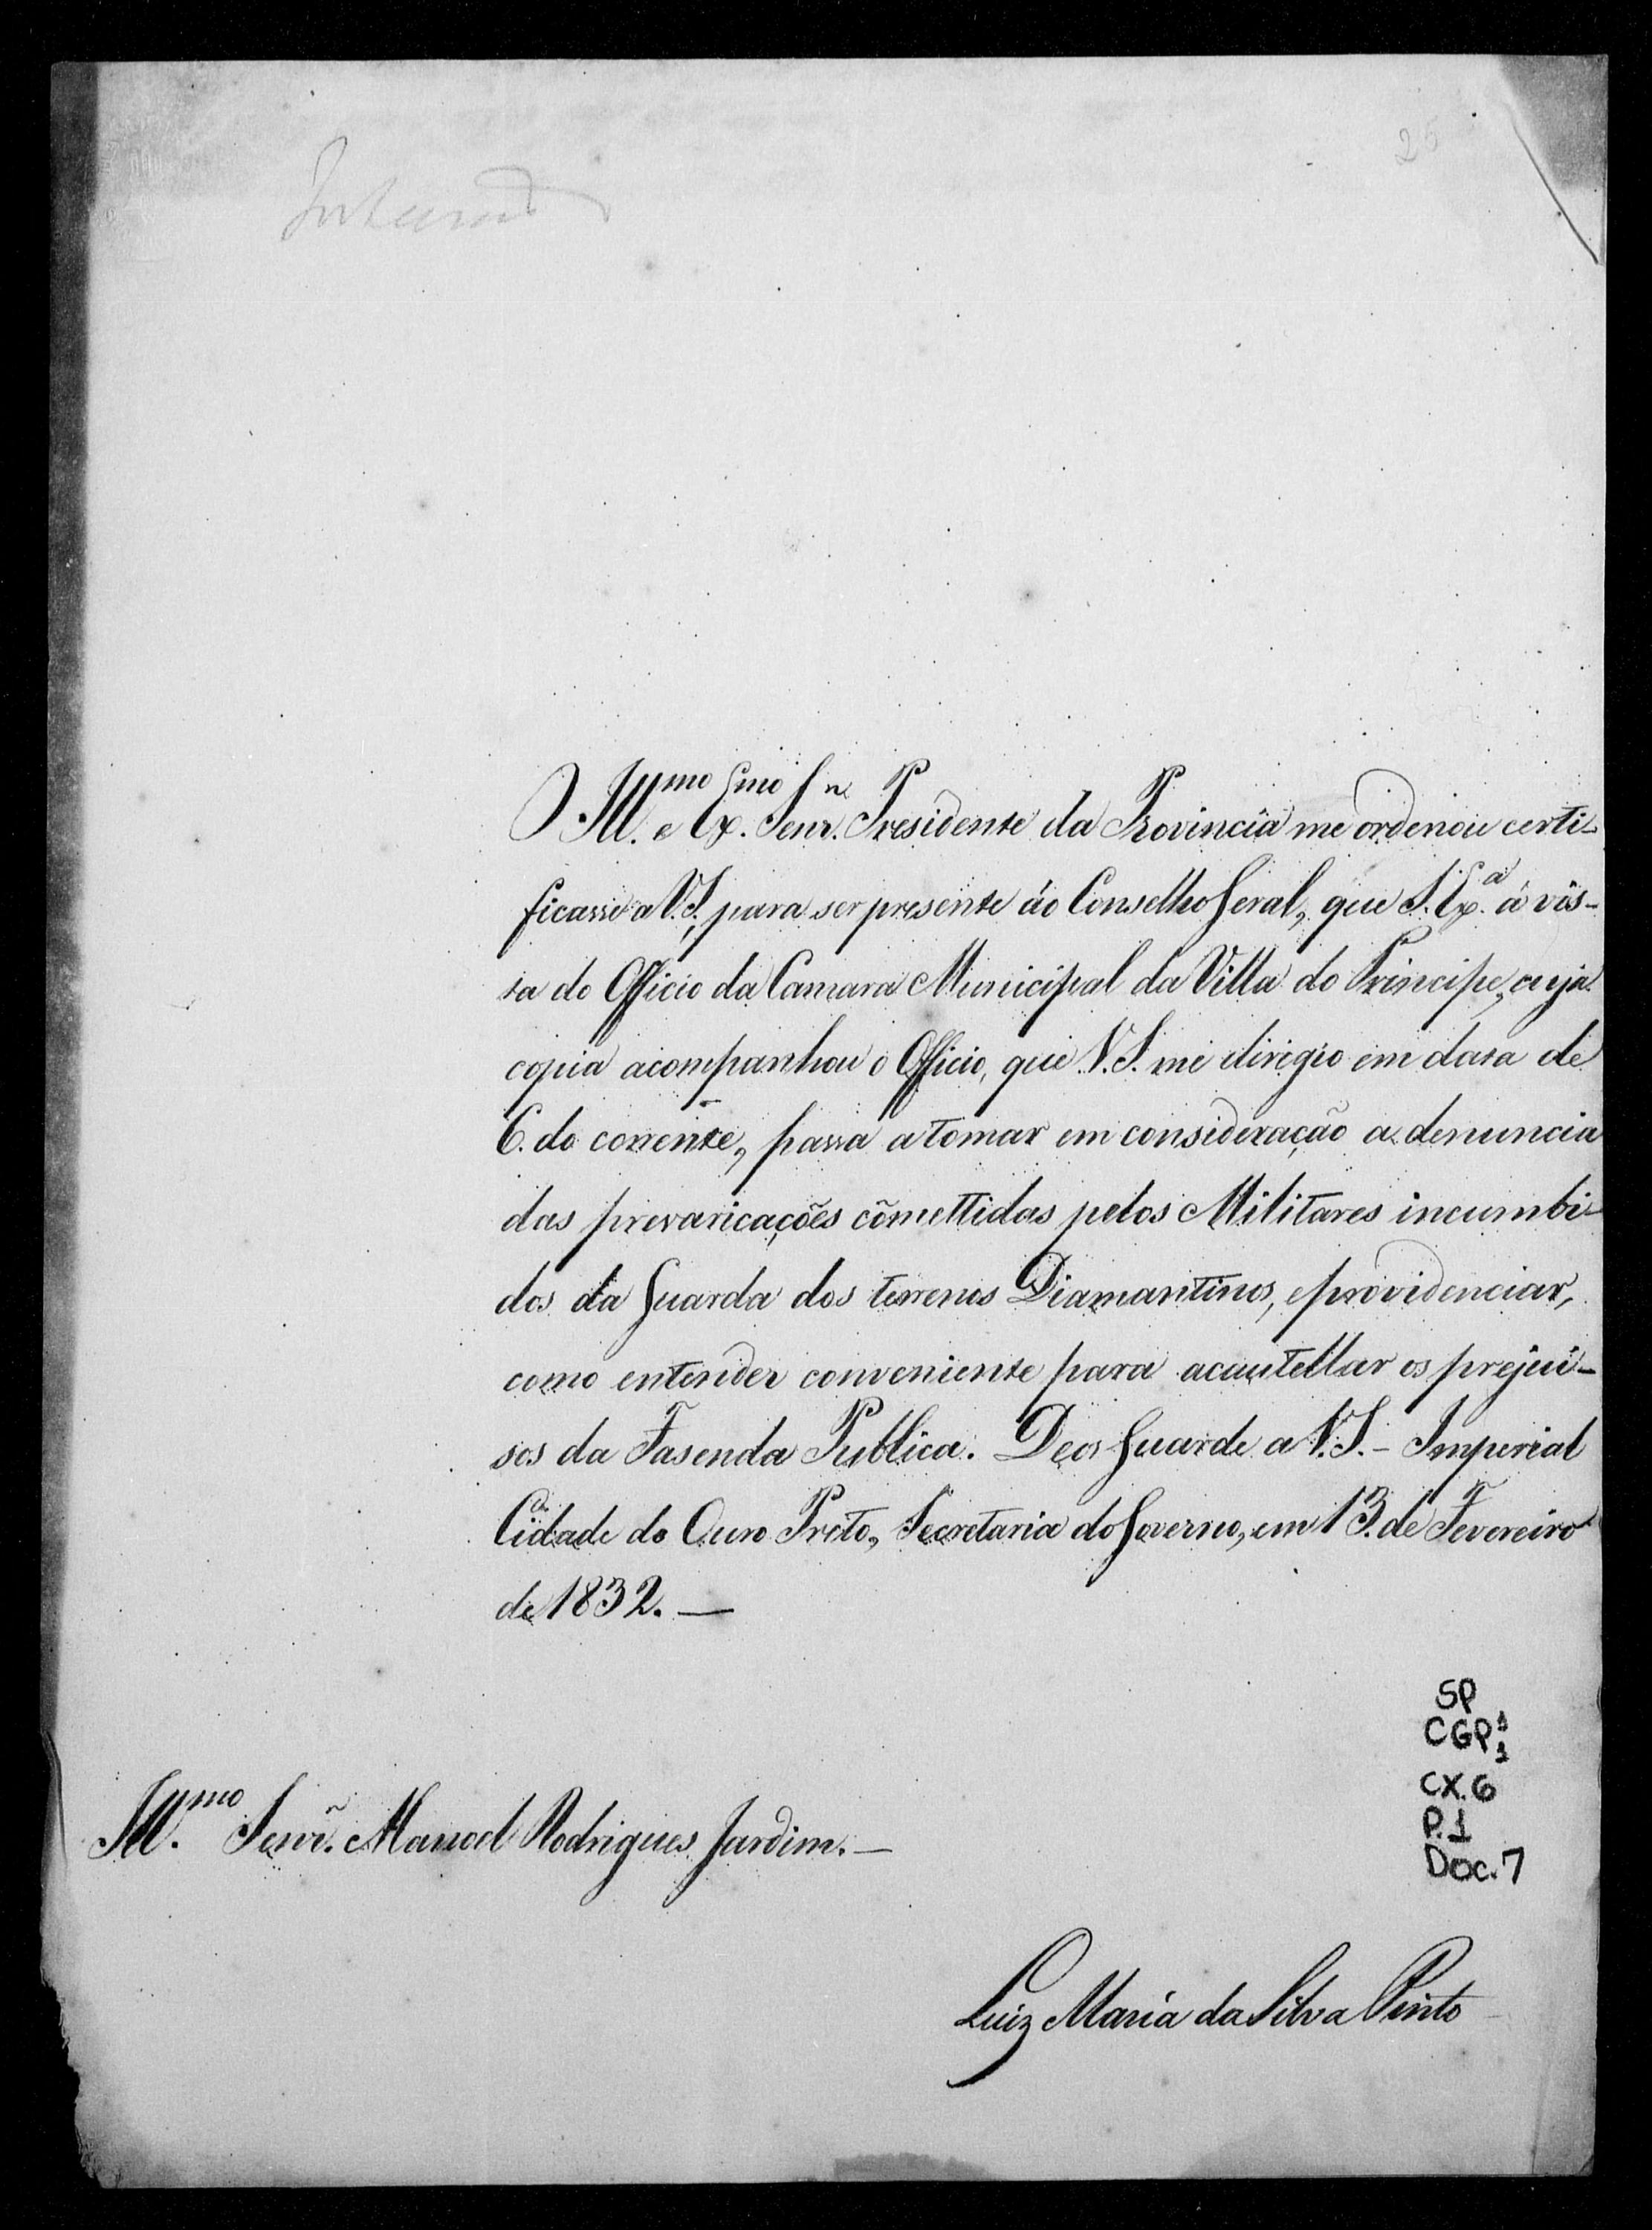 25
O Ill.mo e Ex.mo Senr. Presidente da Provincia me ordenou certi-
ficasse a V.S., para ser presente áo Conselho Geral, que S. Ex.a á vis-
ta do Officio da Camara Municipal da Villa do Principe, cuja
copia acompanhou o Officio, que V.S. me dirigio em data de
6. do corrente, passa a tomar em consideração a denuncia
das prevaricações cõmettidas pelos Militares incumbi-
dos da Guarda dos terrenos Diamantinos, e providenciar,
como entender conveniente para acautellar os prejui-
sos da Fasenda Publica. Deos Guarde a V.S. - Imperial
Cidade do Ouro Preto, Secretaria do Governo, em 13. de Fevereiro
de 1832. —
SP
CGP 1 1
CX. 6
P. 1
Doc. 7
Ill.mo Senr. Manoel Rodrigues Jardim. —
Luiz Maria da Silva Pinto